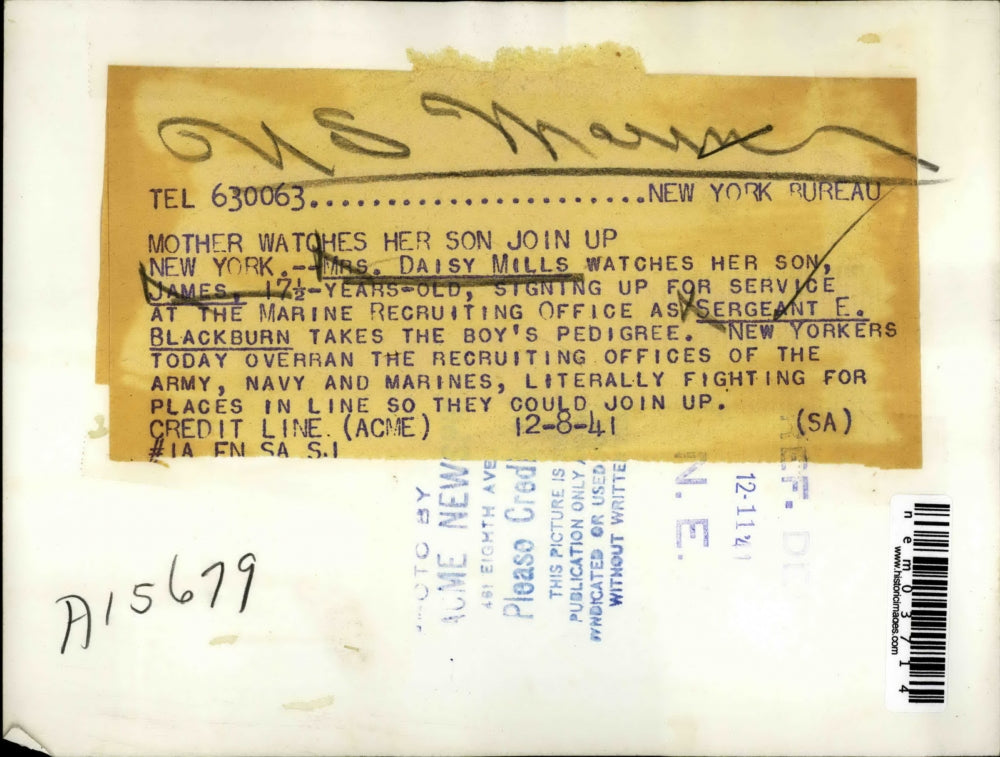 US Marines
TEL 630063.......................NEW YORK BUREAU
MOTHER WATCHES HER SON JOIN UP
NEW YORK.--MRS. DAISY MILLS WATCHES HER SON,
JAMES, 17½-YEARS-OLD, SIGNING UP FOR SERVICE
AT THE MARINE RECRUITING OFFICE AS SERGEANT E.
BLACKBURN TAKES THE BOY'S PEDIGREE. NEW YORKERS
TODAY OVERRAN THE RECRUITING OFFICES OF THE
ARMY, NAVY AND MARINES, LITERALLY FIGHTING FOR
PLACES IN LINE SO THEY COULD JOIN UP.
CREDIT LINE (ACME) 12-8-41 (SA)
#1A EN SA SJ
PHOTO BY
ACME NEWS
461 EIGHTH AVE
Please Credi
THIS PICTURE IS
PUBLICATION ONLY
SYNDICATED OR USED
WITHOUT WRITTE
N.E.
12-11 41
A15679
nem03714
www.historicimages.com